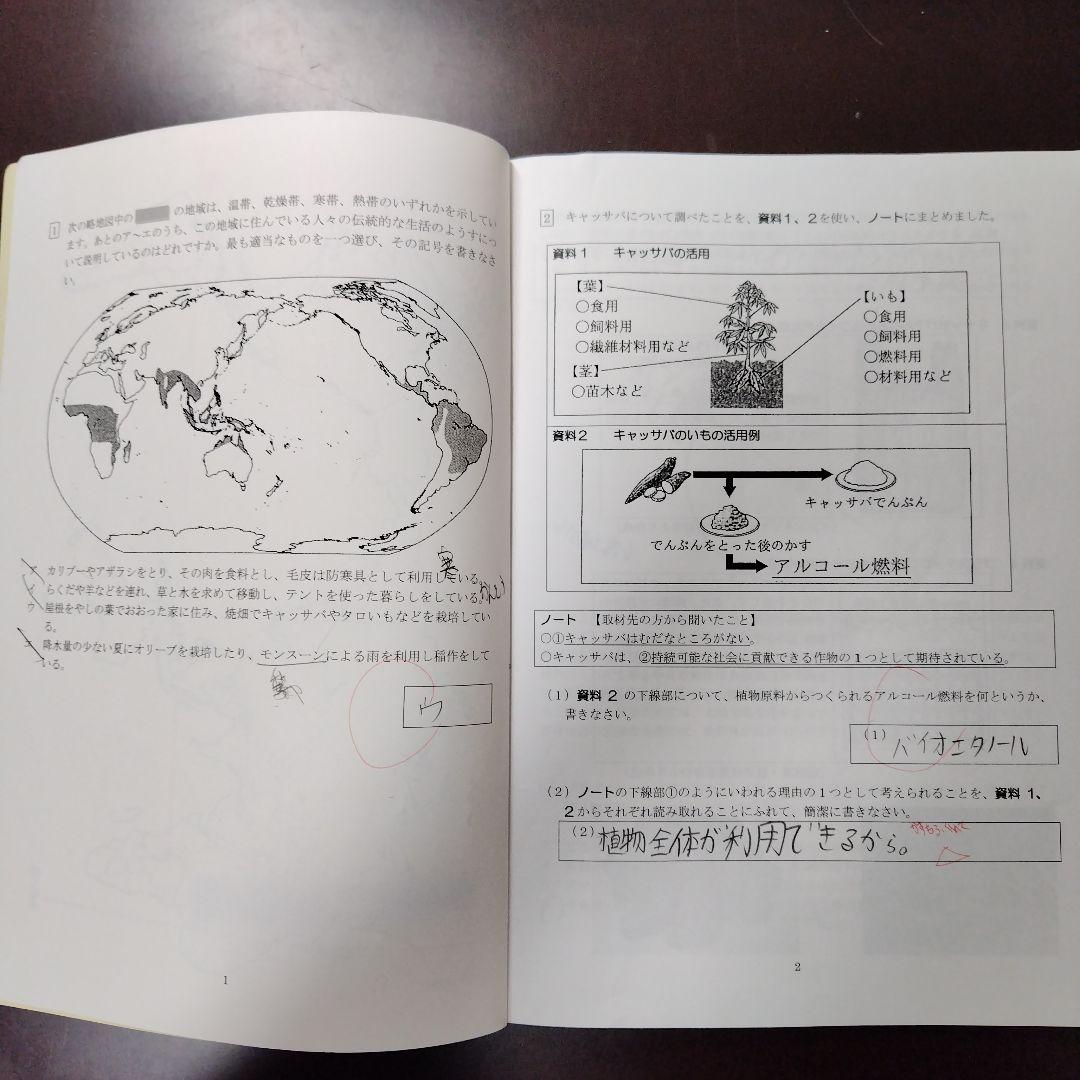 1 次の略地図中の の地域は、温帯、乾燥帯、寒帯、熱帯のいずれかを示してい
ます。あとのア～エのうち、この地域に住んでいる人々の伝統的な生活のようすにつ
いて説明しているのはどれですか。最も適当なものを一つ選び、その記号を書きなさ
い。
ア カリブーやアザラシをとり、その肉を食料とし、毛皮は防寒具として利用している。
寒
イ らくだや羊などを連れ、草と水を求めて移動し、テントを使った暮らしをしている。
ウ 屋根をやしの葉でおおった家に住み、焼畑でキャッサバやタロいもなどを栽培してい
る。
エ 降水量の少ない夏にオリーブを栽培したり、モンスーンによる雨を利用し稲作をして
いる。
ウ
1
2 キャッサバについて調べたことを、資料1、2を使い、ノートにまとめました。
資料1 キャッサバの活用
【葉】
○食用
○飼料用
○繊維材料用など
【茎】
○苗木など
【いも】
○食用
○飼料用
○燃料用
○材料用など
資料2 キャッサバのいもの活用例
キャッサバでんぷん
でんぷんをとった後のかす
アルコール燃料
ノート 【取材先の方から聞いたこと】
○①キャッサバはむだなところがない。
○キャッサバは、②持続可能な社会に貢献できる作物の1つとして期待されている。
(1) 資料2の下線部について、植物原料からつくられるアルコール燃料を何というか、
書きなさい。
(1) バイオエタノール
(2) ノートの下線部①のようにいわれる理由の1つとして考えられることを、資料1、
2からそれぞれ読み取れることにふれて、簡潔に書きなさい。
(2) 植物全体が利用できるから。
2